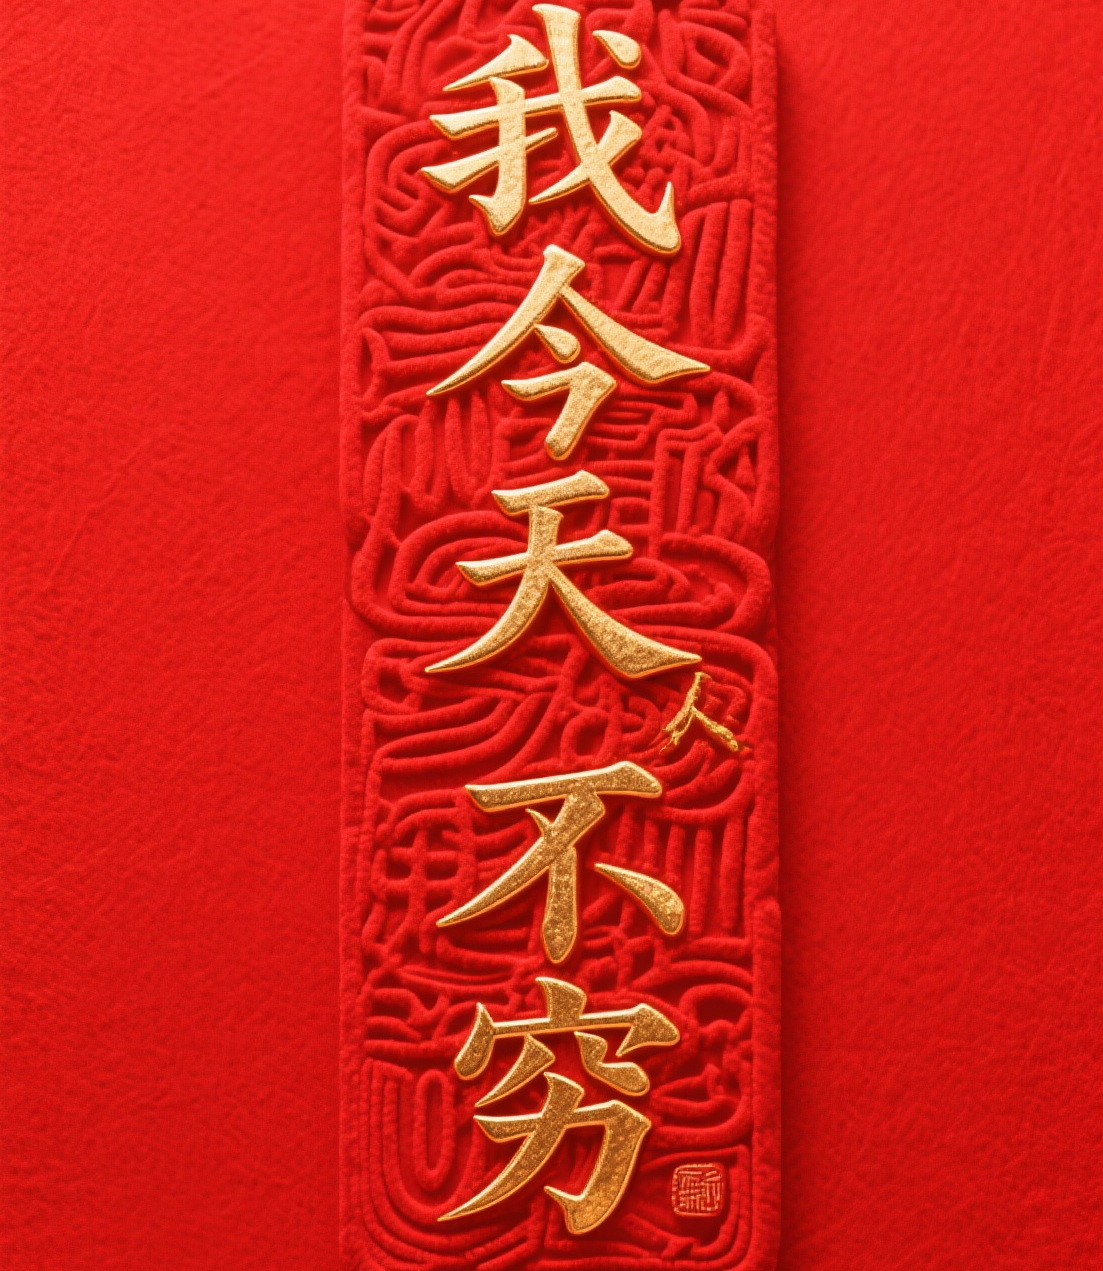 我今天不穷
人